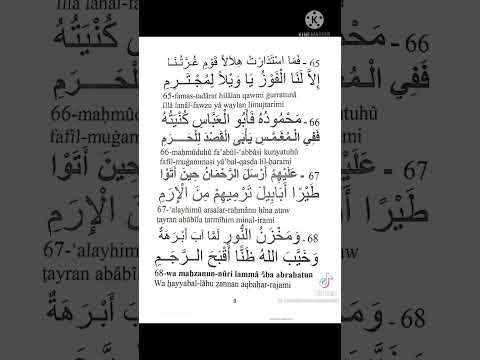 KINEMASTER
65 - فَمَا اسْتَدَارَتْ هِلاَلاً قَوْمِ غُرَّتُنَا
إِلاَّ لَنَا الْفَوْزُ يَا وَيْلاً لِمُجْتَرِمِ
65-famas-tadārat hilālan qawmi ġurratunā
illā lanāl-fawzu yā waylan limujtarimi
66 - مَحْمُودُهُ فَأَبُو الْعَبَّاسِ كُنْيَتُهُ
فَفِي الْمُغَمَّسِ يَأْبَى الْقَصْدَ لِلْحَرَمِ
66-maḥmūduhū fa'abūl-'abbāsi kunyatuhū
fafīl-muġammasi yā'bal-qaṣda lil-ḥarami
67 - عَلَيْهِمُ أَرْسَلَ الرَّحْمَانُ حِينَ أَتَوْا
طَيْرًا أَبَابِيلَ تَرْمِيهِمْ مِنَ الْإِرَمِ
67-'alayhimū arsalar-raḥmānu ḥina ataw
ṭayran abābīla tarmīhim minal-irami
68 - وَمَخْزَنُ النُّورِ لَمَّا ابَ أَبْرَهَةٌ
وَخَيَّبَ اللهُ ظَنًّا أَقْبَحَ الرَّجَمِ
68-wa maḫzanun-nūri lammā 'āba abrahatun
Wa ḫayyabal-lāhu ẓannan aqbaḥar-rajami